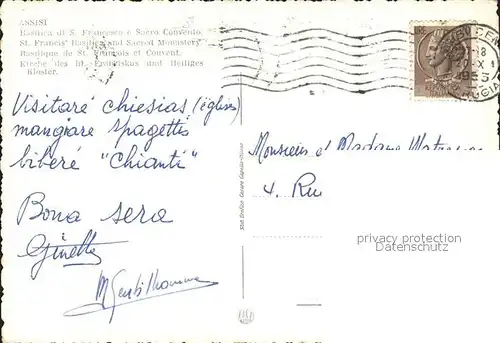 ASSISI
Basilica di S. Francesco e Sacro Convento.
St. Francis' Basilica and Sacred Monastery
Basilique de St. François et Convent.
Kirche des hl. Franziskus und Heiliges
Kloster.
Visitare chiesias (églises)
mangiare spagettis
biberé "Chianti"
Bona sera
Ginette
M Gentilhomme
Monsieur et Madame
4. Ru
privacy protection
www.oldthing.net